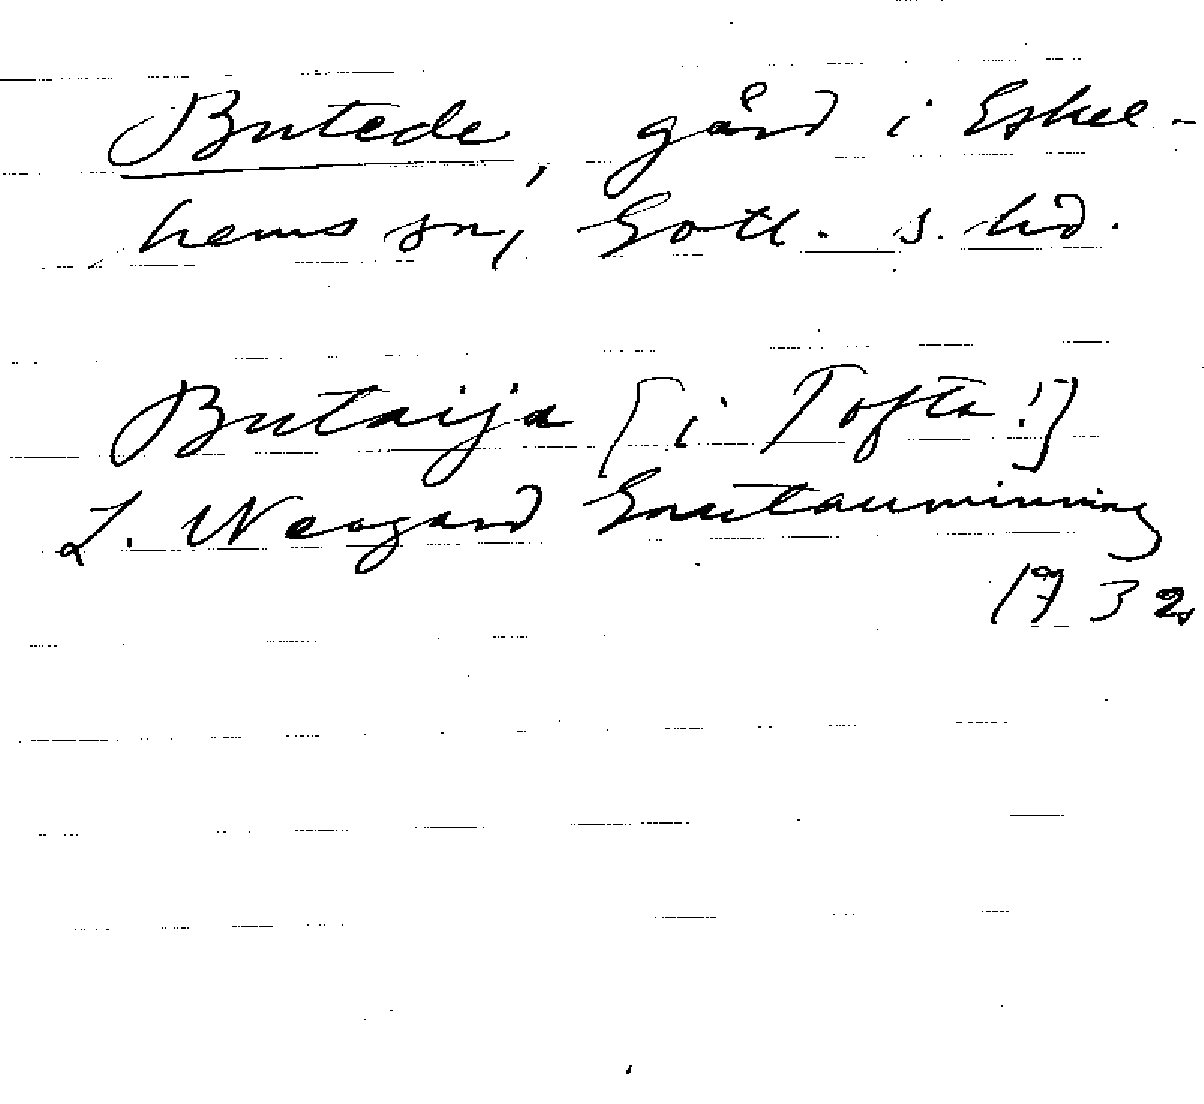 Butede, gård i Eskel-
hems sn, Gotl. s. hd.
Butaija [i Tofta!]
L. Neogard Gautauminning
1732